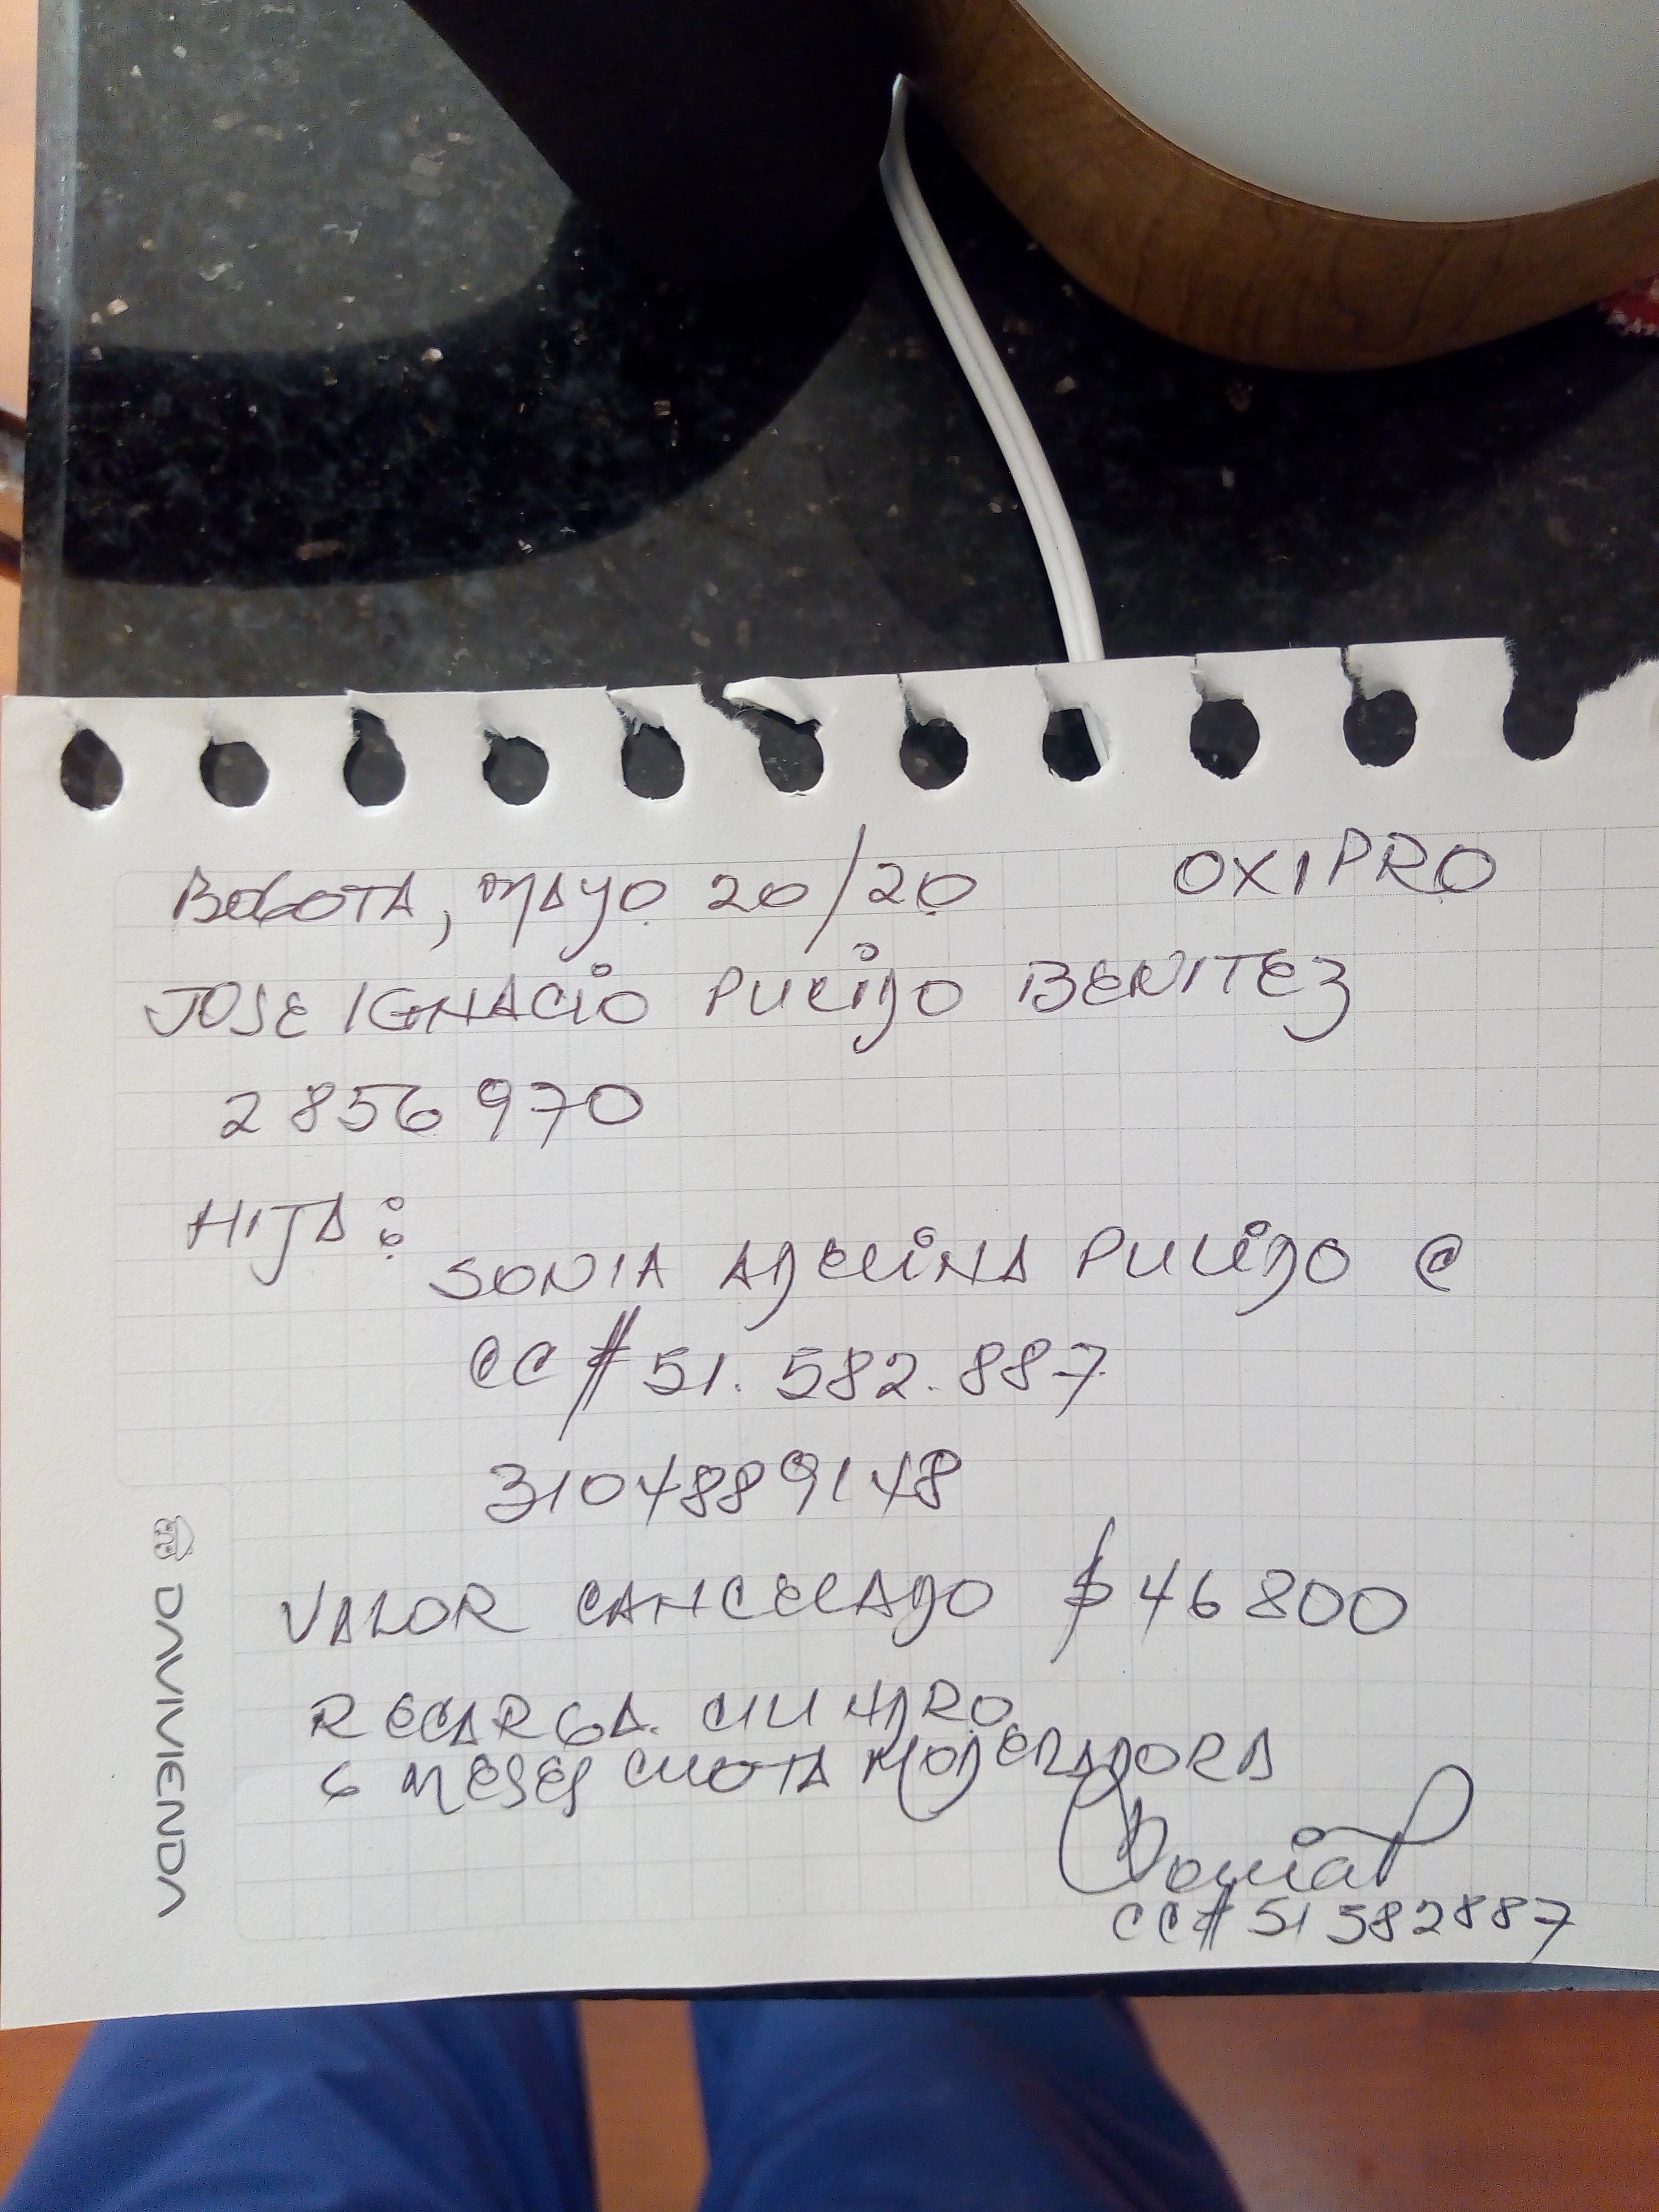 BOGOTA, MAYO 20/20 OXIPRO
JOSE IGNACIO PULIDO BENITEZ
2856970
HIJA:
SONIA ADELINA PULIDO C
CC # 51.582.887
3104889148
VALOR CANCELADO $ 46800
RECARGA CILINDRO
6 MESES CUOTA MODERADORA
Sonia P
CC # 51582887
DAVIVIENDA